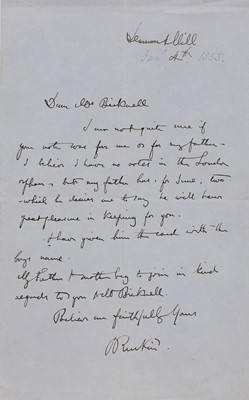 Denmark Hill
Jan 4th 1855.
Dear Mrs Bicknell
I am not quite sure if
your note was for me or for my father -
I believe I have no votes in the London
orphans - but my father has, for June, two
- which he desires me to say he will have
great pleasure in keeping for you.
I have given him the card with the
boys name.
My Father & mother beg to join in kind
regards to you & Mr Bicknell.
Believe me faithfully Yours
J Ruskin